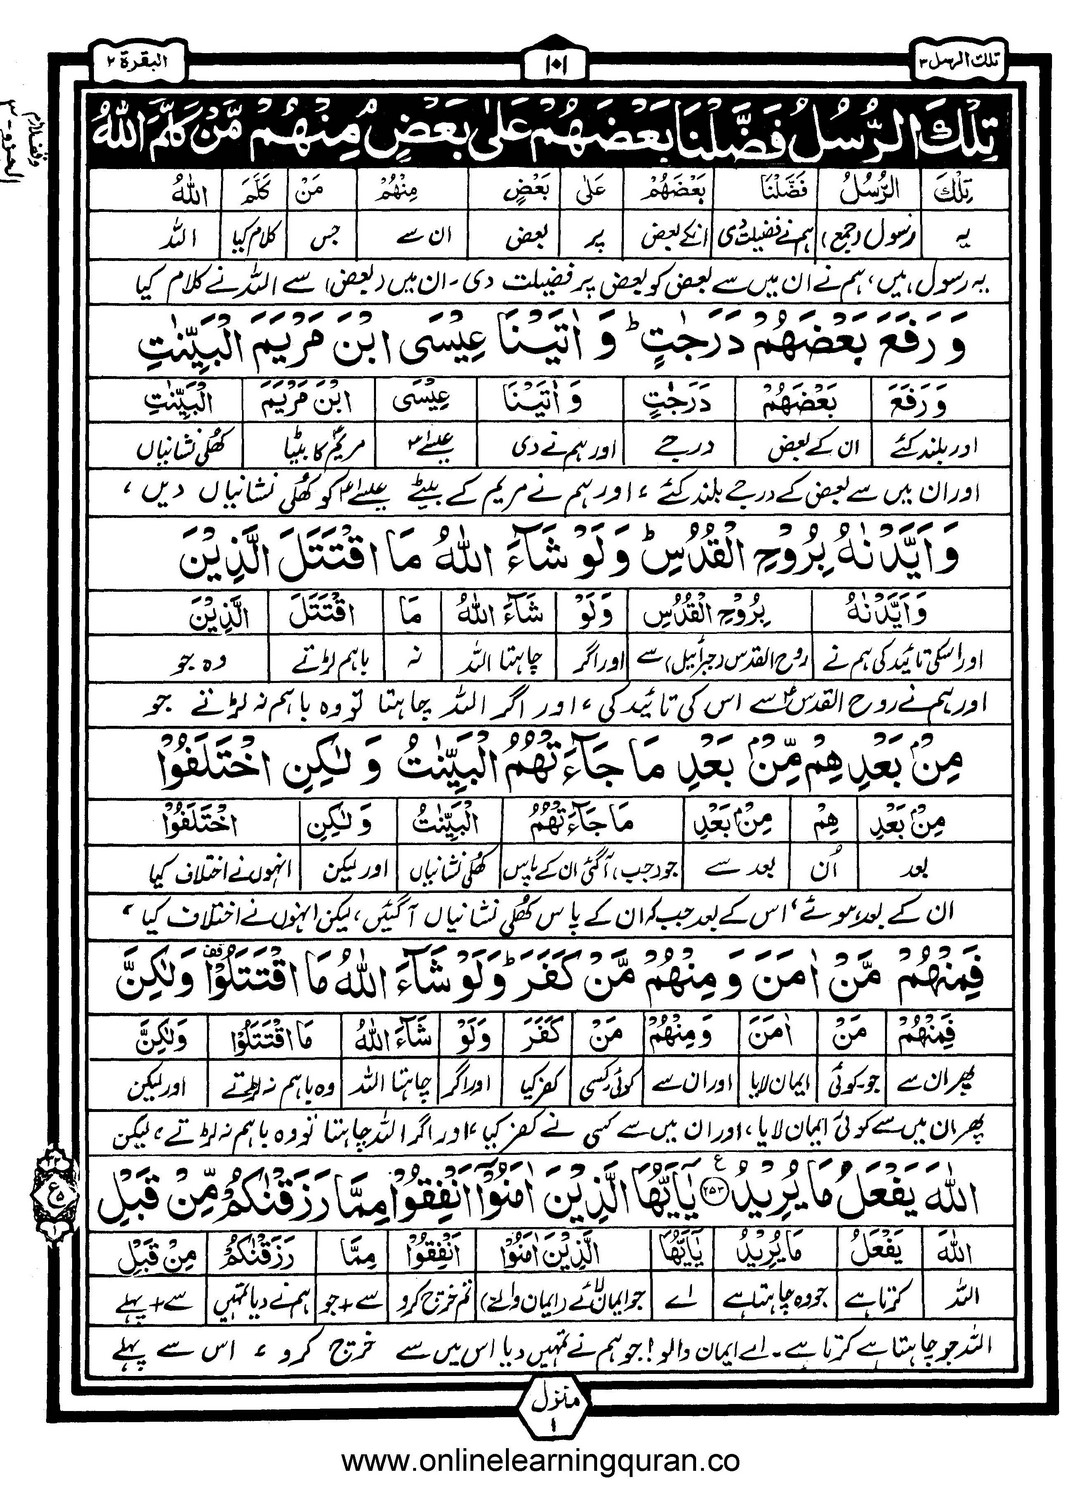 تلك الرسل ٣
١٠١
البقرة ٢
تِلْكَ الرُّسُلُ فَضَّلْنَا بَعْضَهُمْ عَلٰى بَعْضٍ مِنْهُمْ مَّنْ كَلَّمَ اللّٰهُ
تِلْكَ الرُّسُلُ فَضَّلْنَا بَعْضَهُمْ عَلٰى بَعْضٍ مِنْهُمْ مَنْ كَلَّمَ اللّٰهُ
یہ رسول (جمع) ہم نے فضیلت دی انکے بعض پر بعض ان سے جس کلام کیا اللہ
یہ رسول ہیں، ہم نے ان میں سے بعض کو بعض پر فضیلت دی۔ ان میں (بعض) سے اللہ نے کلام کیا
وَ رَفَعَ بَعْضَهُمْ دَرَجٰتٍ ؕ وَ اٰتَيْنَا عِيْسَى ابْنَ مَرْيَمَ الْبَيِّنٰتِ
وَ رَفَعَ بَعْضَهُمْ دَرَجٰتٍ وَ اٰتَيْنَا عِيْسَى ابْنَ مَرْيَمَ الْبَيِّنٰتِ
اور بلند کئے ان کے بعض درجے اور ہم نے دی عیسےٰؑ مریمؑ کا بیٹا کھلی نشانیاں
اور ان میں سے بعض کے درجے بلند کئے، اور ہم نے مریم کے بیٹے عیسےٰؑ کو کھلی نشانیاں دیں،
وَ اَيَّدْنٰهُ بِرُوْحِ الْقُدُسِ ؕ وَلَوْ شَآءَ اللّٰهُ مَا اقْتَتَلَ الَّذِيْنَ
وَ اَيَّدْنٰهُ بِرُوْحِ الْقُدُسِ وَلَوْ شَآءَ اللّٰهُ مَا اقْتَتَلَ الَّذِيْنَ
اور اسکی تائید کی ہم نے روح القدس (جبرائیل) سے اور اگر چاہتا اللہ نہ باہم لڑتے وہ جو
اور ہم نے روح القدسؑ سے اس کی تائید کی، اور اگر اللہ چاہتا تو وہ باہم نہ لڑتے جو
مِنْۢ بَعْدِهِمْ مِّنْۢ بَعْدِ مَا جَآءَتْهُمُ الْبَيِّنٰتُ وَ لٰكِنِ اخْتَلَفُوْا
مِنْۢ بَعْدِ هِمْ مِنْۢ بَعْدِ مَا جَآءَتْهُمُ الْبَيِّنٰتُ وَ لٰكِنِ اخْتَلَفُوْا
بعد اُن بعد سے جو (جب) آگئی ان کے پاس کھلی نشانیاں اور لیکن انہوں نے اختلاف کیا
ان کے بعد ہوئے، اس کے بعد جب کہ ان کے پاس کھلی نشانیاں آگئیں، لیکن انہوں نے اختلاف کیا،
فَمِنْهُمْ مَّنْ اٰمَنَ وَ مِنْهُمْ مَّنْ كَفَرَ ؕ وَلَوْ شَآءَ اللّٰهُ مَا اقْتَتَلُوْا ۟ وَلٰكِنَّ
فَمِنْهُمْ مَنْ اٰمَنَ وَ مِنْهُمْ مَنْ كَفَرَ وَلَوْ شَآءَ اللّٰهُ مَا اقْتَتَلُوْا وَلٰكِنَّ
پھر ان سے جو۔کوئی ایمان لایا اور ان سے کوئی کسی کفر کیا اور اگر چاہتا اللہ وہ باہم نہ لڑتے اور لیکن
پھر ان میں سے کوئی ایمان لایا، اور ان میں سے کسی نے کفر کیا، اور اگر اللہ چاہتا تو وہ باہم نہ لڑتے، لیکن
اللّٰهَ يَفْعَلُ مَا يُرِيْدُ ۝۲۵۳ ع يٰۤاَيُّهَا الَّذِيْنَ اٰمَنُوْۤا اَنْفِقُوْا مِمَّا رَزَقْنٰكُمْ مِّنْ قَبْلِ
اللّٰهَ يَفْعَلُ مَا يُرِيْدُ يٰۤاَيُّهَا الَّذِيْنَ اٰمَنُوْۤا اَنْفِقُوْا مِمَّا رَزَقْنٰكُمْ مِنْ قَبْلِ
اللہ کرتا ہے جو وہ چاہتا ہے اے جو ایمان لائے (ایمان والے) تم خرچ کرو سے + جو ہم نے دیا تمہیں سے + پہلے
اللہ جو چاہتا ہے کرتا ہے۔ اے ایمان والو! جو ہم نے تمہیں دیا اس میں سے خرچ کرو، اس سے پہلے
منزل ١
www.onlinelearningquran.co